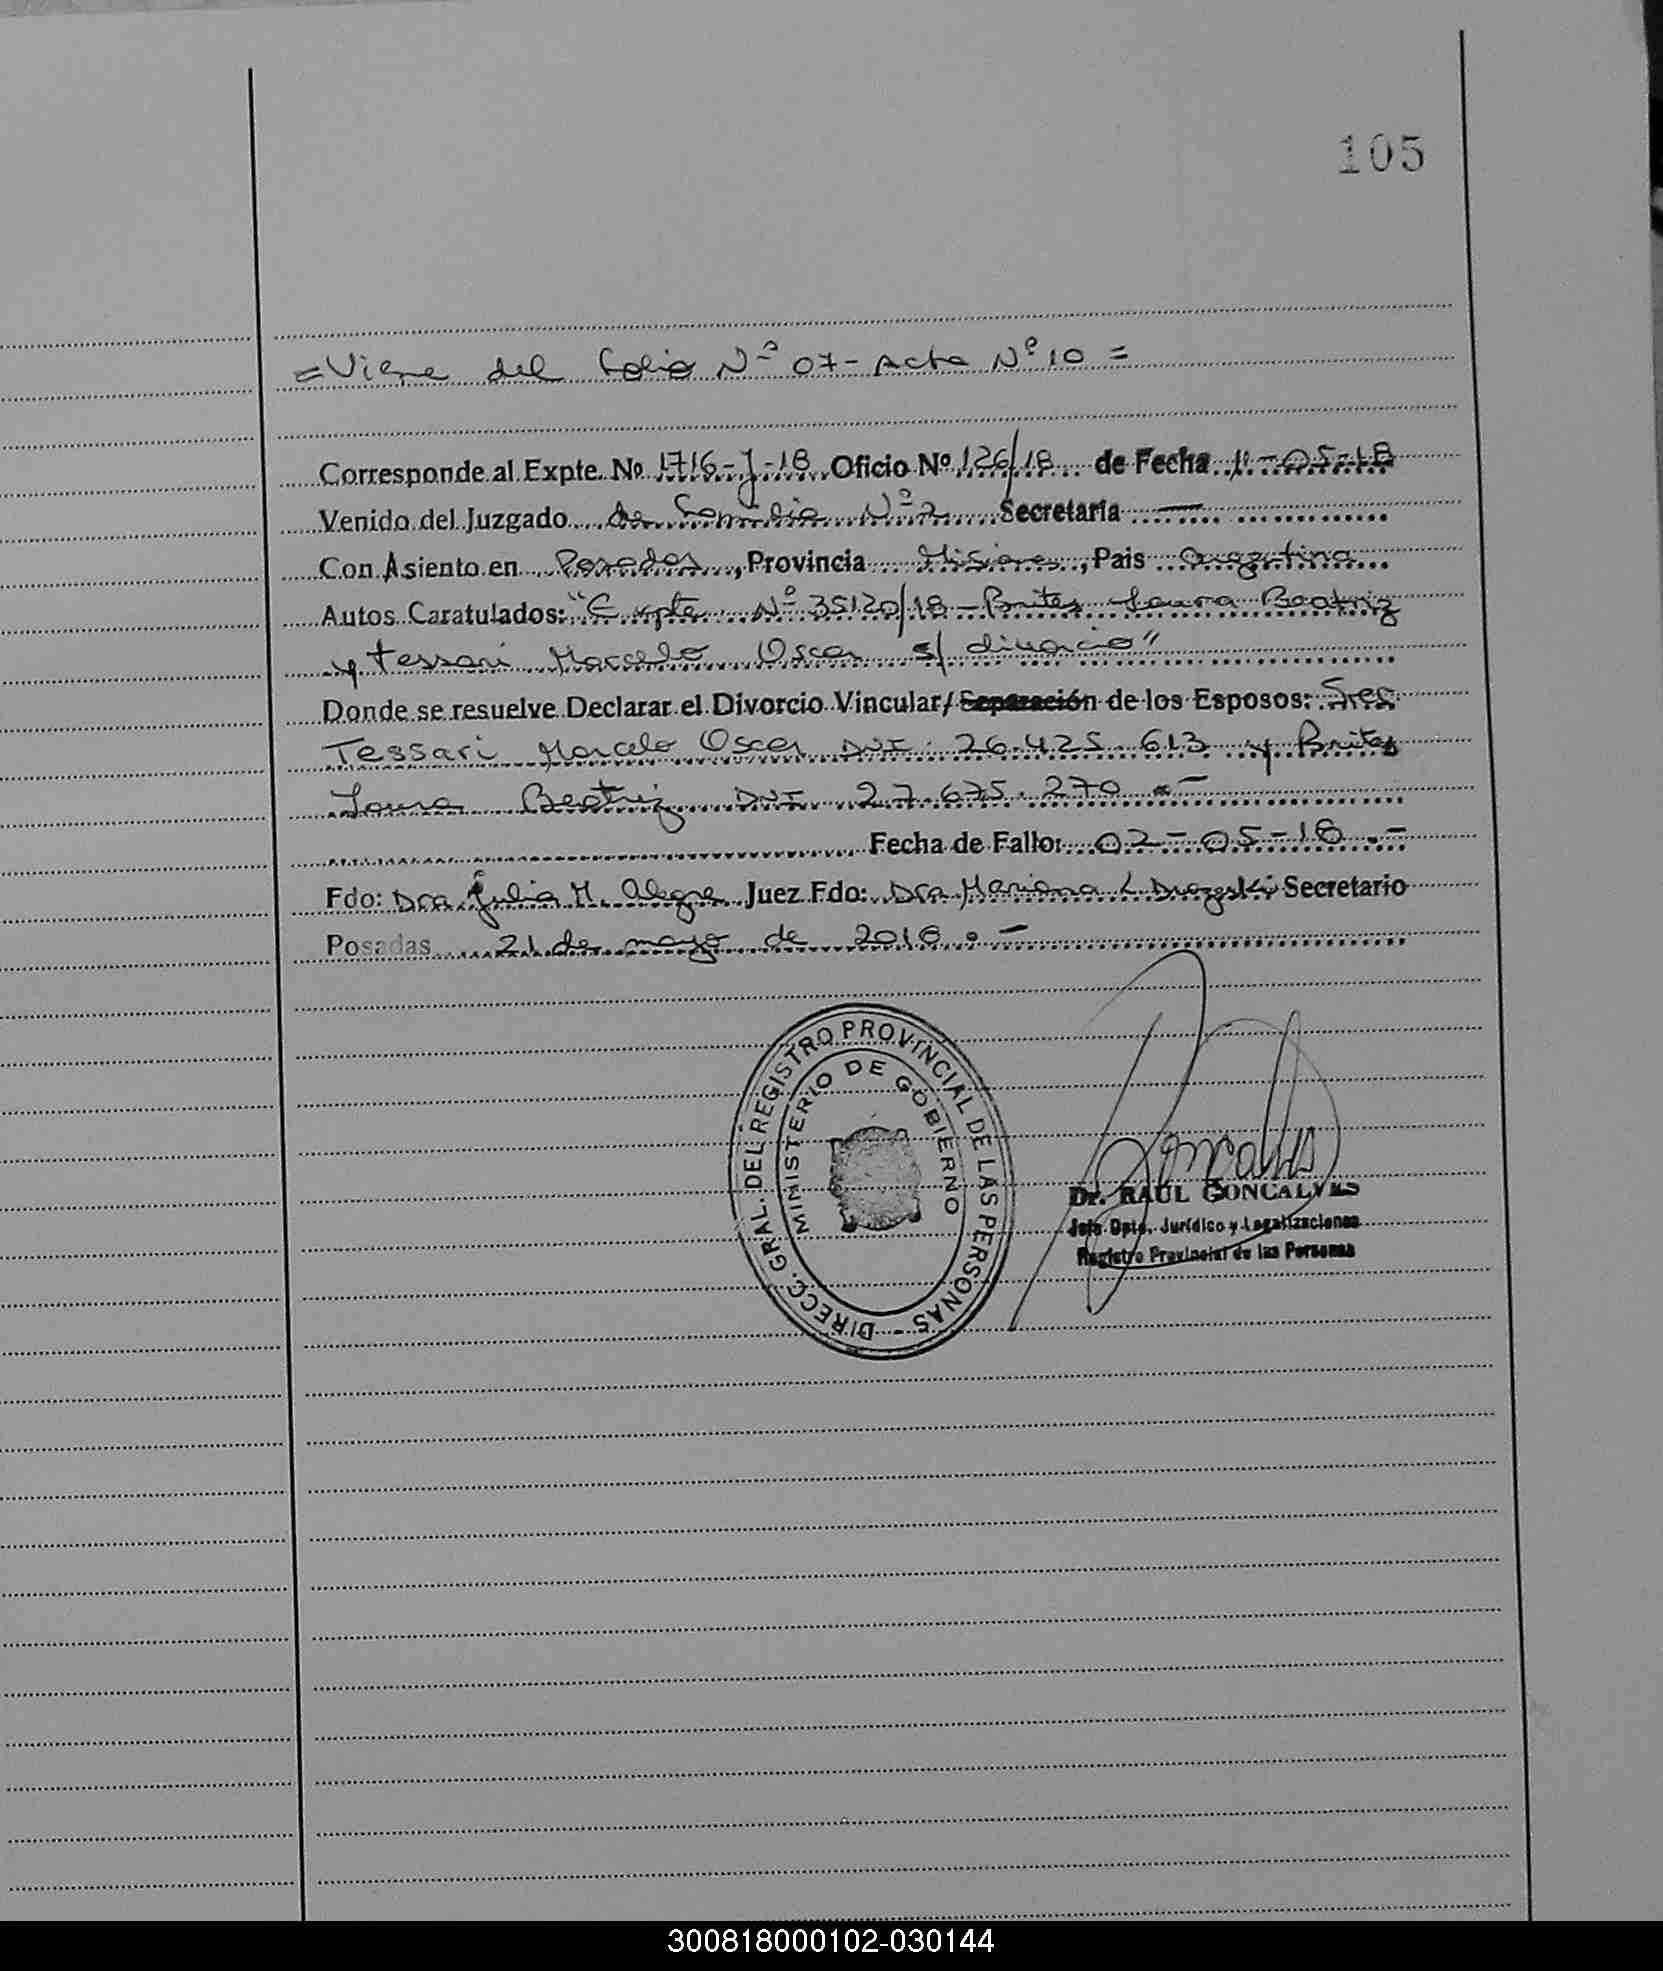 105
=Viene del Folio Nº 07- Acta Nº 10 =
Corresponde al Expte. No 1716-J-18 Oficio Nº 126/18 de Fecha 11-05-18
Venido del Juzgado de Familia Nº 2 Secretaria —
Con Asiento en Posadas, Provincia Misiones, Pais Argentina
Autos Caratulados: "Expte Nº 35120/18 - Brites Laura Beatriz
y Tessari Marcelo Oscar s/ divorcio"
Donde se resuelve Declarar el Divorcio Vincular/Separación de los Esposos: Sres
Tessari Marcelo Oscar DNI. 26.425.613 y Brites
Laura Beatriz DNI. 27.675.270 .-
Fecha de Fallo: 02-05-18.-
Fdo: Dra Julia M. Alegre Juez Fdo: Dra Mariana L. Secretario
Posadas 21 de mayo de 2018.-
DIRECC. GRAL. DEL REGISTRO PROVINCIAL DE LAS PERSONAS -
MINISTERIO DE GOBIERNO
Dr. RAUL GONCALVES
Jefe Dpto. Jurídico y Legalizaciones
Registro Provincial de las Personas
300818000102-030144